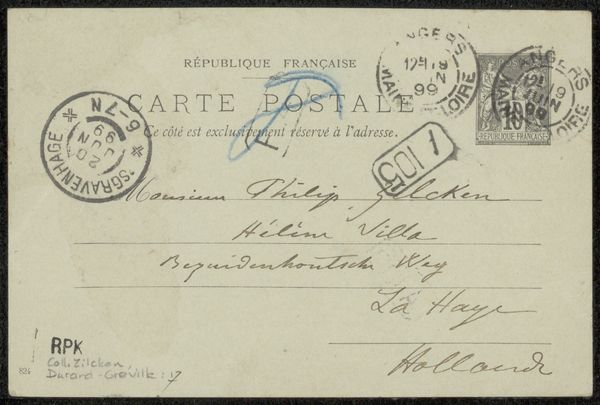 RÉPUBLIQUE FRANÇAISE
CARTE POSTALE
Ce côté est exclusivement réservé à l'adresse.
ANGERS
12
99
MAINE LOIRE
ANGERS
19
JUIN
99
MAINE LOIRE
10
REPUBLIQUE FRANÇAISE
6-7N
20 JUN 99
'SGRAVENHAGE
1105
Monsieur Philip Zilcken
Hélène Villa
Bezuidenhoutsche Weg
La Haye
Hollande
RPK
Coll. Zilcken
Durand-Gréville: 7
824